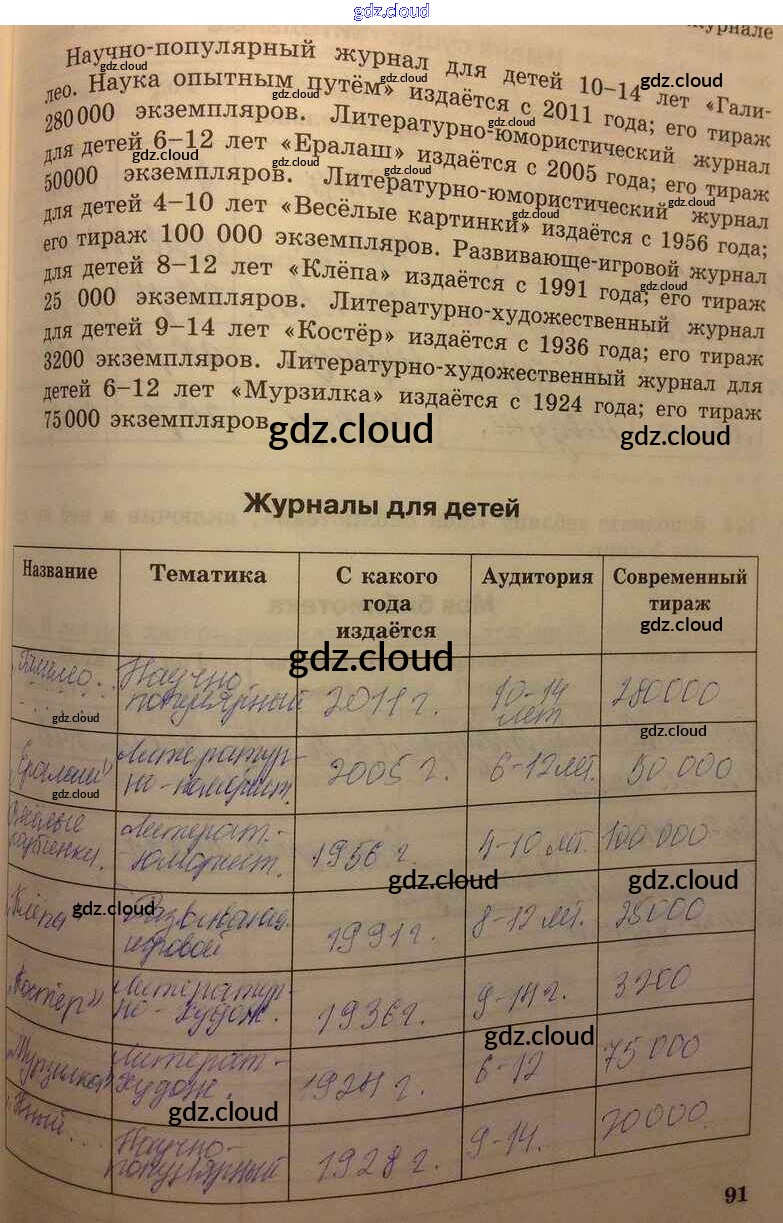 gdz.cloud
журнале
Научно-популярный журнал для детей 10–14 лет «Гали-
лео. Наука опытным путём» издаётся с 2011 года; его тираж
280000 экземпляров. Литературно-юмористический журнал
для детей 6–12 лет «Ералаш» издаётся с 2005 года; его тираж
50000 экземпляров. Литературно-юмористический журнал
для детей 4–10 лет «Весёлые картинки» издаётся с 1956 года;
его тираж 100 000 экземпляров. Развивающе-игровой журнал
для детей 8–12 лет «Клёпа» издаётся с 1991 года; его тираж
25 000 экземпляров. Литературно-художественный журнал
для детей 9–14 лет «Костёр» издаётся с 1936 года; его тираж
3200 экземпляров. Литературно-художественный журнал для
детей 6–12 лет «Мурзилка» издаётся с 1924 года; его тираж
75000 экземпляров
gdz.cloud gdz.cloud
Журналы для детей
Название Тематика С какого года издаётся Аудитория Современный тираж
Научно-популярный 2011 г. 10-14 лет 280000
"Ералаш" Литературно-юморист. 2005 г. 6-12 лет. 50 000
Весёлые картинки. Литерат.-юморист. 1956 г. 4-10 лет. 100 000
"Клёпа" Развивающ. игровой 1991 г. 8-12 лет. 25000
"Костёр" Литературно-худож. 1936 г. 9-14 г. 3200
"Мурзилка" Литерат-худож. 1924 г. 6-12 75 000
"Юный... Научно-популярный 1928 г. 9-14. 20000.
91